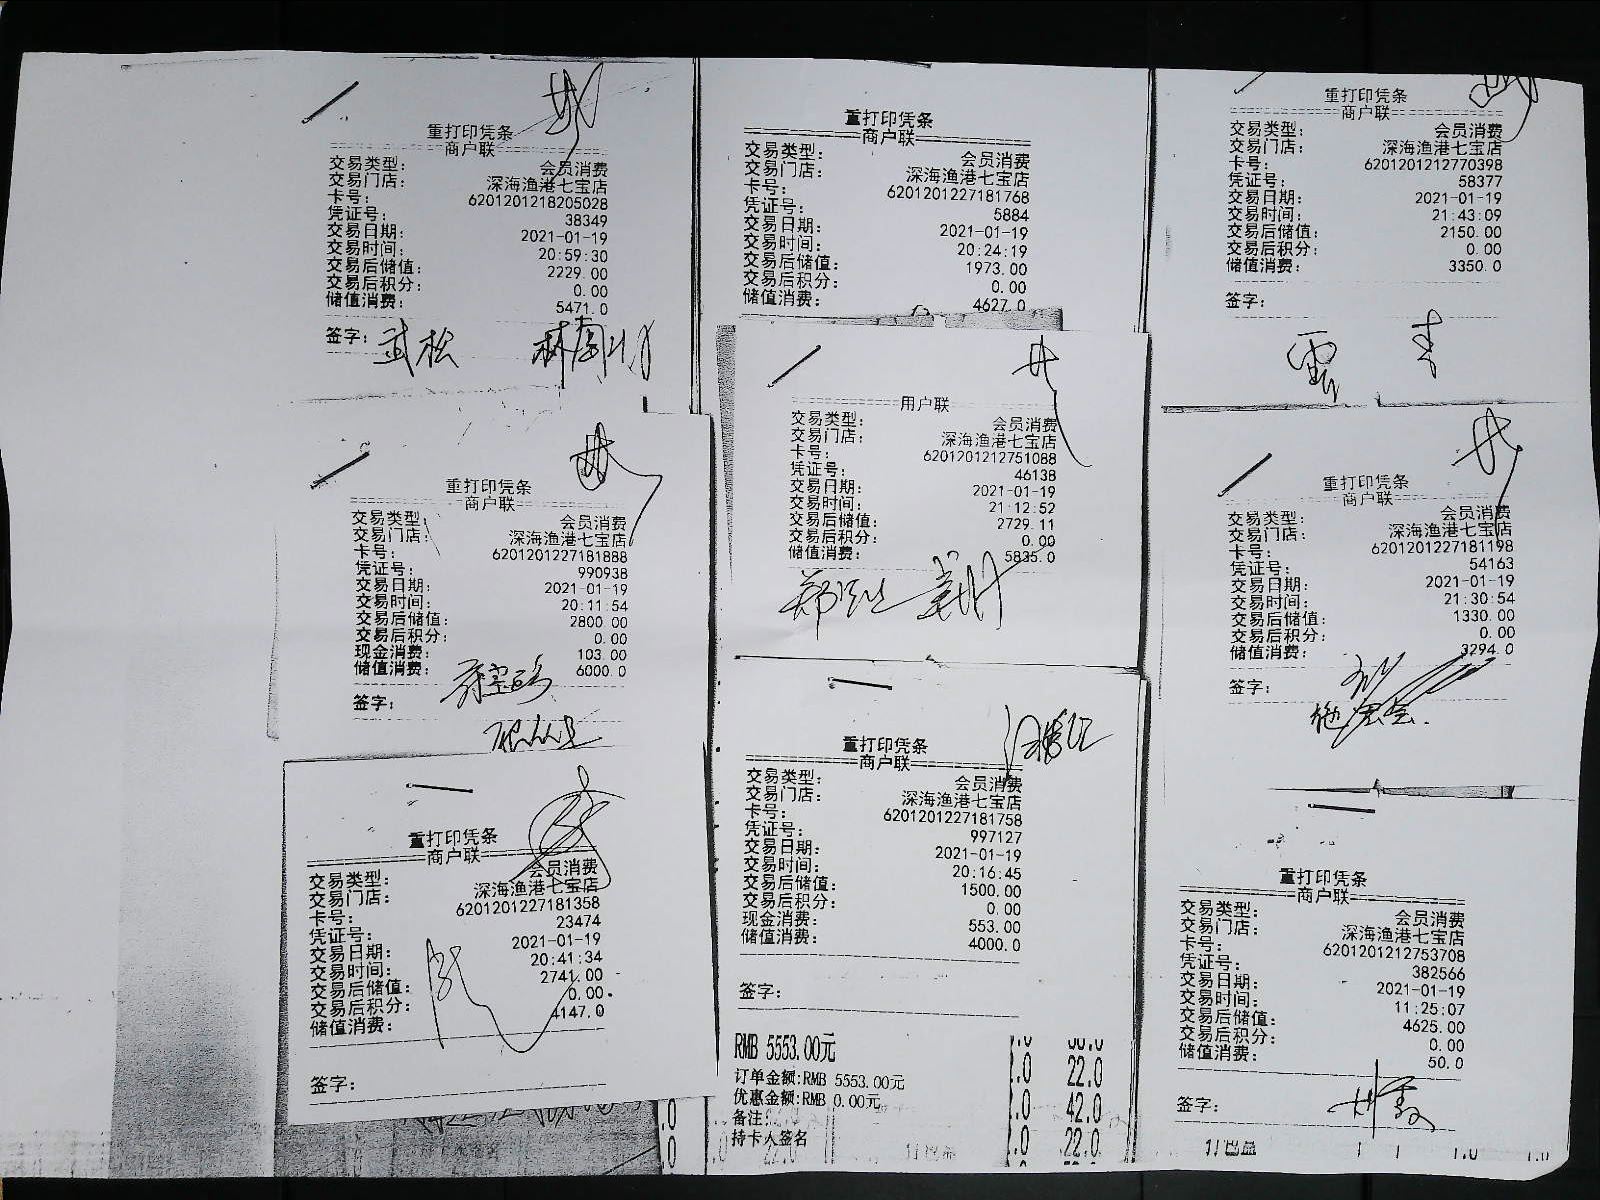 重打印凭条
商户联
交易类型: 会员消费
交易门店: 深海渔港七宝店
卡号: 6201201218205028
凭证号: 38349
交易日期: 2021-01-19
交易时间: 20:59:30
交易后储值: 2229.00
交易后积分: 0.00
储值消费: 5471.0
签字: 武松
重打印凭条
商户联
交易类型: 会员消费
交易门店: 深海渔港七宝店
卡号: 6201201227181768
凭证号: 5884
交易日期: 2021-01-19
交易时间: 20:24:19
交易后储值: 1973.00
交易后积分: 0.00
储值消费: 4627.0
重打印凭条
商户联
交易类型: 会员消费
交易门店: 深海渔港七宝店
卡号: 6201201212770398
凭证号: 58377
交易日期: 2021-01-19
交易时间: 21:43:09
交易后储值: 2150.00
交易后积分: 0.00
储值消费: 3350.0
签字:
重打印凭条
商户联
交易类型: 会员消费
交易门店: 深海渔港七宝店
卡号: 6201201227181888
凭证号: 990938
交易日期: 2021-01-19
交易时间: 20:11:54
交易后储值: 2800.00
交易后积分: 0.00
现金消费: 103.00
储值消费: 6000.0
签字:
用户联
交易类型: 会员消费
交易门店: 深海渔港七宝店
卡号: 6201201212751088
凭证号: 46138
交易日期: 2021-01-19
交易时间: 21:12:52
交易后储值: 2729.11
交易后积分: 0.00
储值消费: 5835.0
重打印凭条
商户联
交易类型: 会员消费
交易门店: 深海渔港七宝店
卡号: 6201201227181198
凭证号: 54163
交易日期: 2021-01-19
交易时间: 21:30:54
交易后储值: 1330.00
交易后积分: 0.00
储值消费: 3294.0
签字:
重打印凭条
商户联
交易类型: 会员消费
交易门店: 深海渔港七宝店
卡号: 6201201227181358
凭证号: 23474
交易日期: 2021-01-19
交易时间: 20:41:34
交易后储值: 2741.00
交易后积分: 0.00
储值消费: 4147.0
签字:
重打印凭条
商户联
交易类型: 会员消费
交易门店: 深海渔港七宝店
卡号: 6201201227181758
凭证号: 997127
交易日期: 2021-01-19
交易时间: 20:16:45
交易后储值: 1500.00
交易后积分: 0.00
现金消费: 553.00
储值消费: 4000.0
签字:
RMB 5553.00元
订单金额:RMB 5553.00元
优惠金额:RMB 0.00元
备注:
持卡人签名
22.0
42.0
22.0
重打印凭条
商户联
交易类型: 会员消费
交易门店: 深海渔港七宝店
卡号: 6201201212753708
凭证号: 382566
交易日期: 2021-01-19
交易时间: 11:25:07
交易后储值: 4625.00
交易后积分: 0.00
储值消费: 50.0
签字: